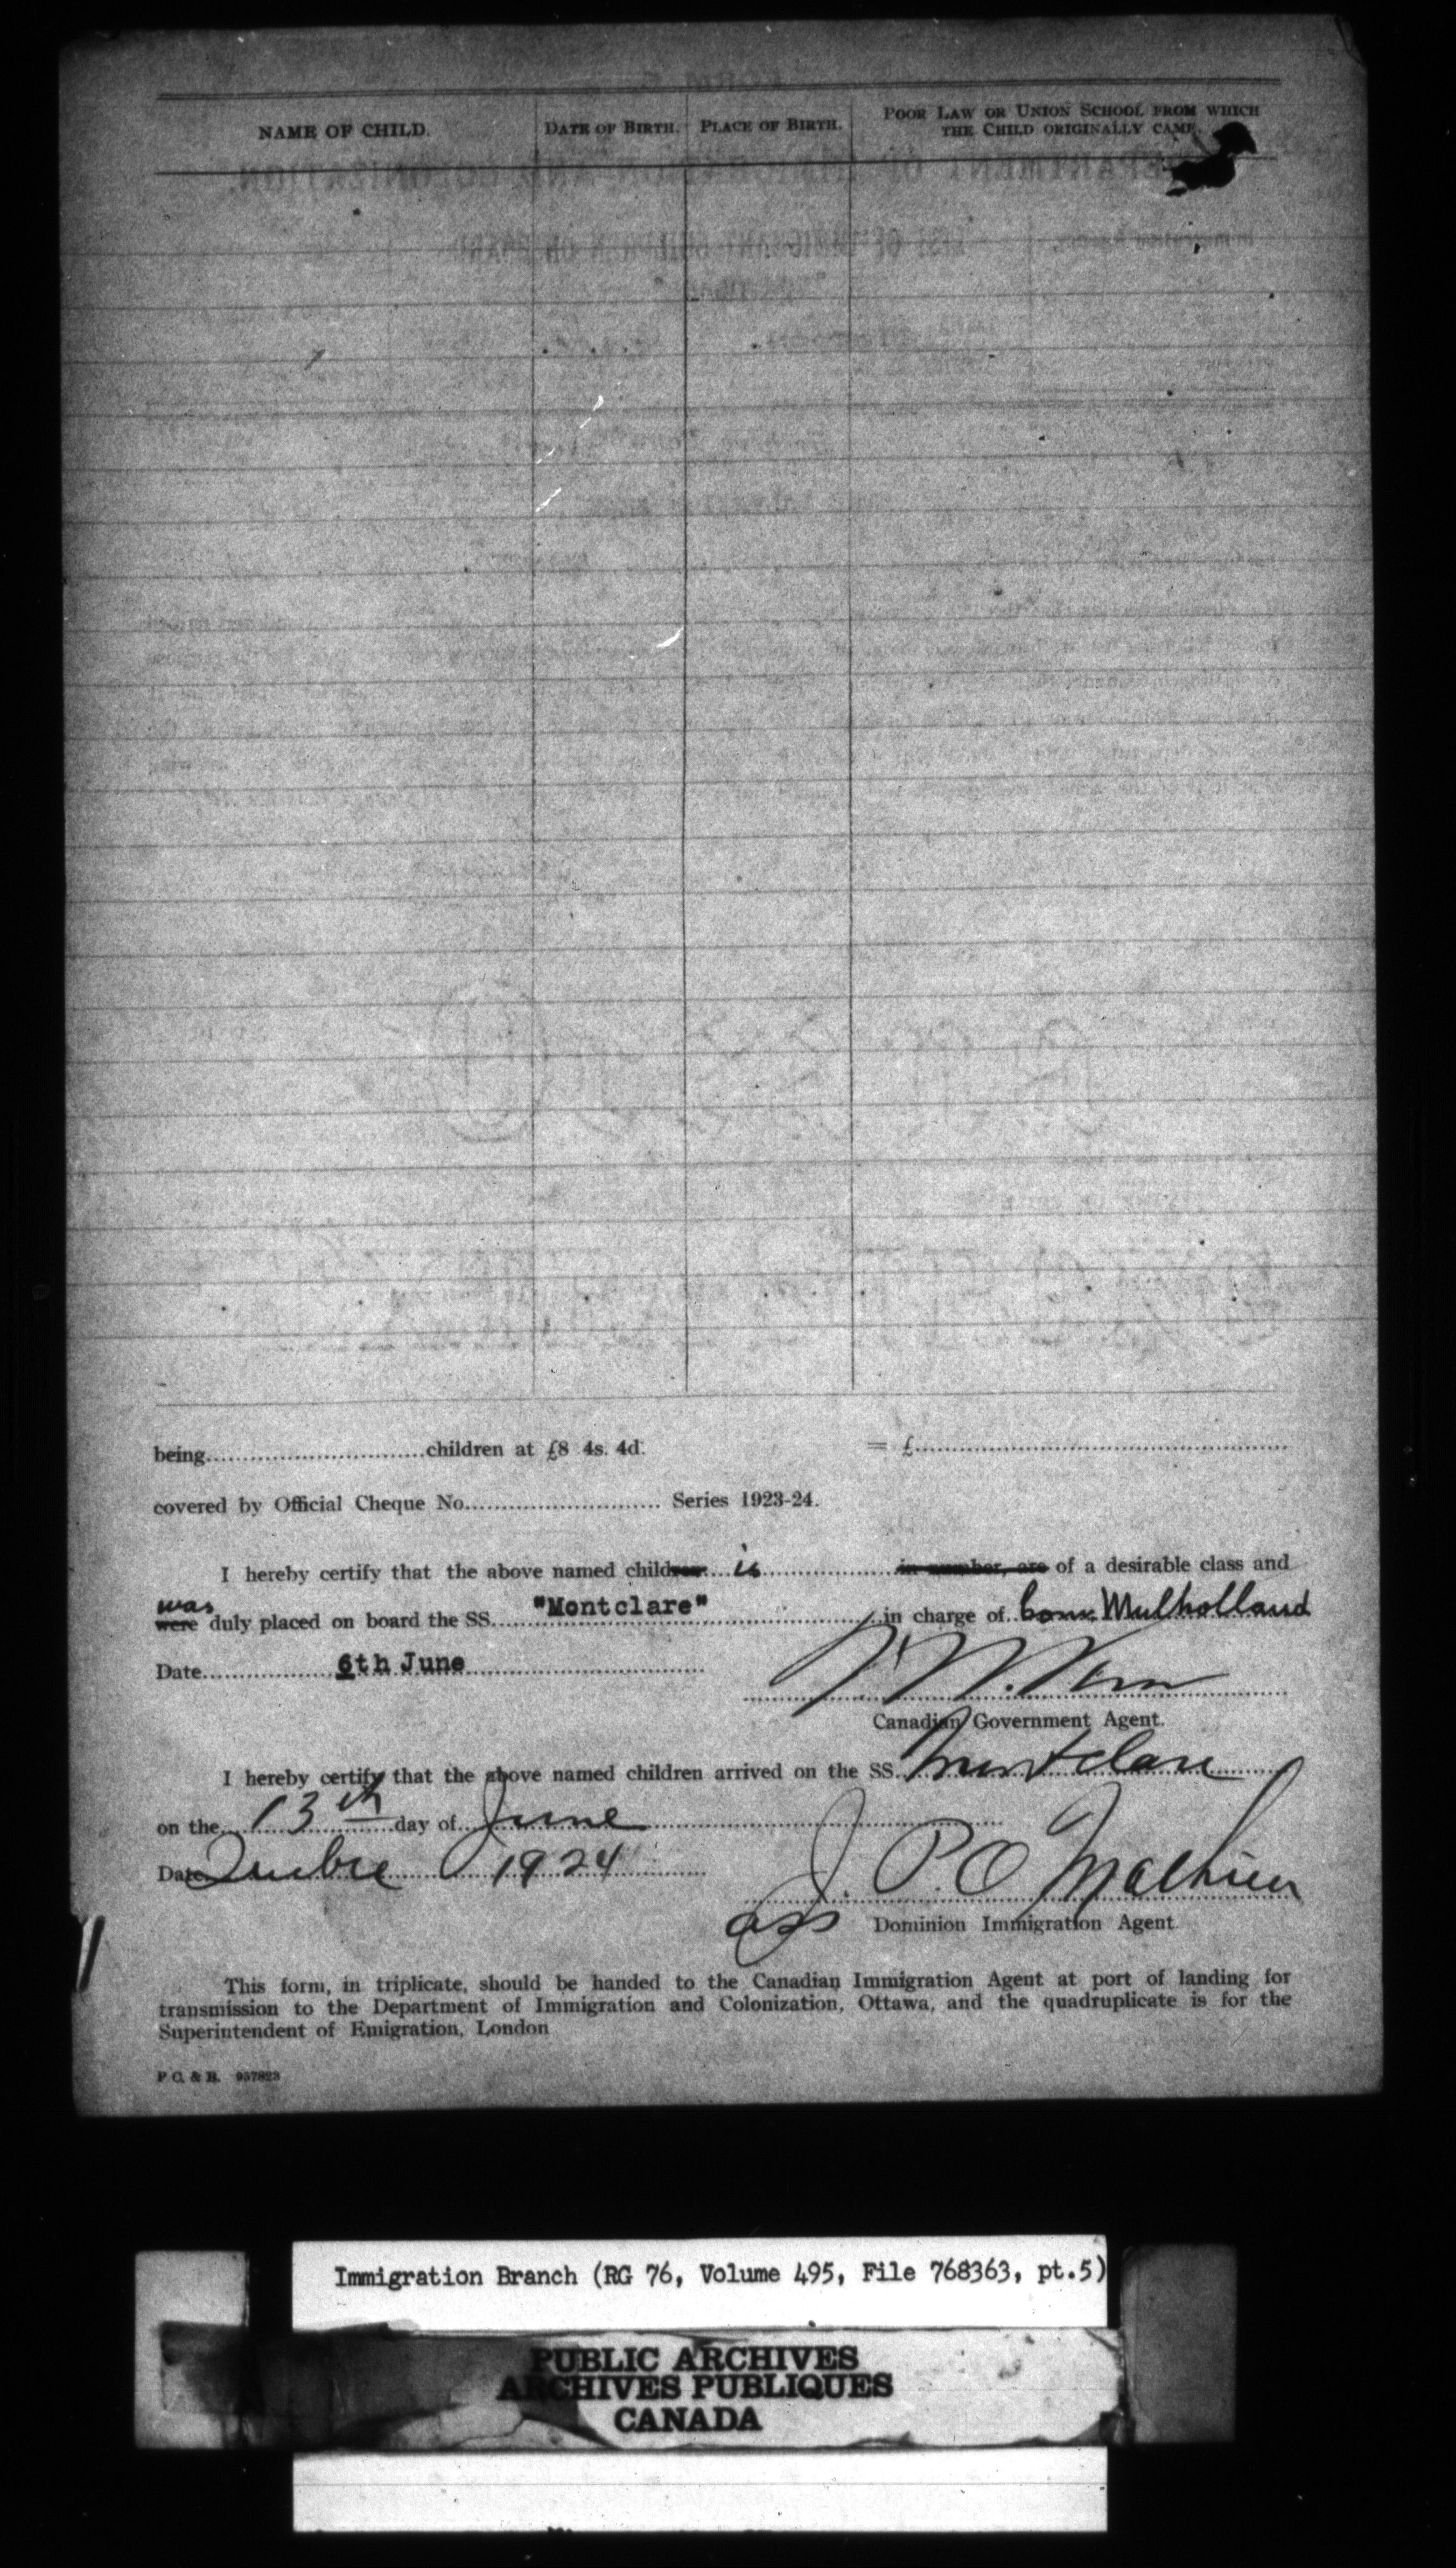 NAME OF CHILD. DATE OF BIRTH. PLACE OF BIRTH. POOR LAW OR UNION SCHOOL FROM WHICH
THE CHILD ORIGINALLY CAME.
being..............................children at £8 4s. 4d. = £..............................
covered by Official Cheque No........................... Series 1923-24.
I hereby certify that the above named children is in number, are of a desirable class and
was
were duly placed on board the SS. "Montclare" in charge of Mulholland
Date 6th June
Canadian Government Agent.
I hereby certify that the above named children arrived on the SS. Montclare
on the 13th day of June
Date Quebec 1924 J. P. O Mathieu
Dominion Immigration Agent
This form, in triplicate, should be handed to the Canadian Immigration Agent at port of landing for
transmission to the Department of Immigration and Colonization, Ottawa, and the quadruplicate is for the
Superintendent of Emigration, London
F C. & B. 957823
Immigration Branch (RG 76, Volume 495, File 768363, pt.5)
PUBLIC ARCHIVES
ARCHIVES PUBLIQUES
CANADA